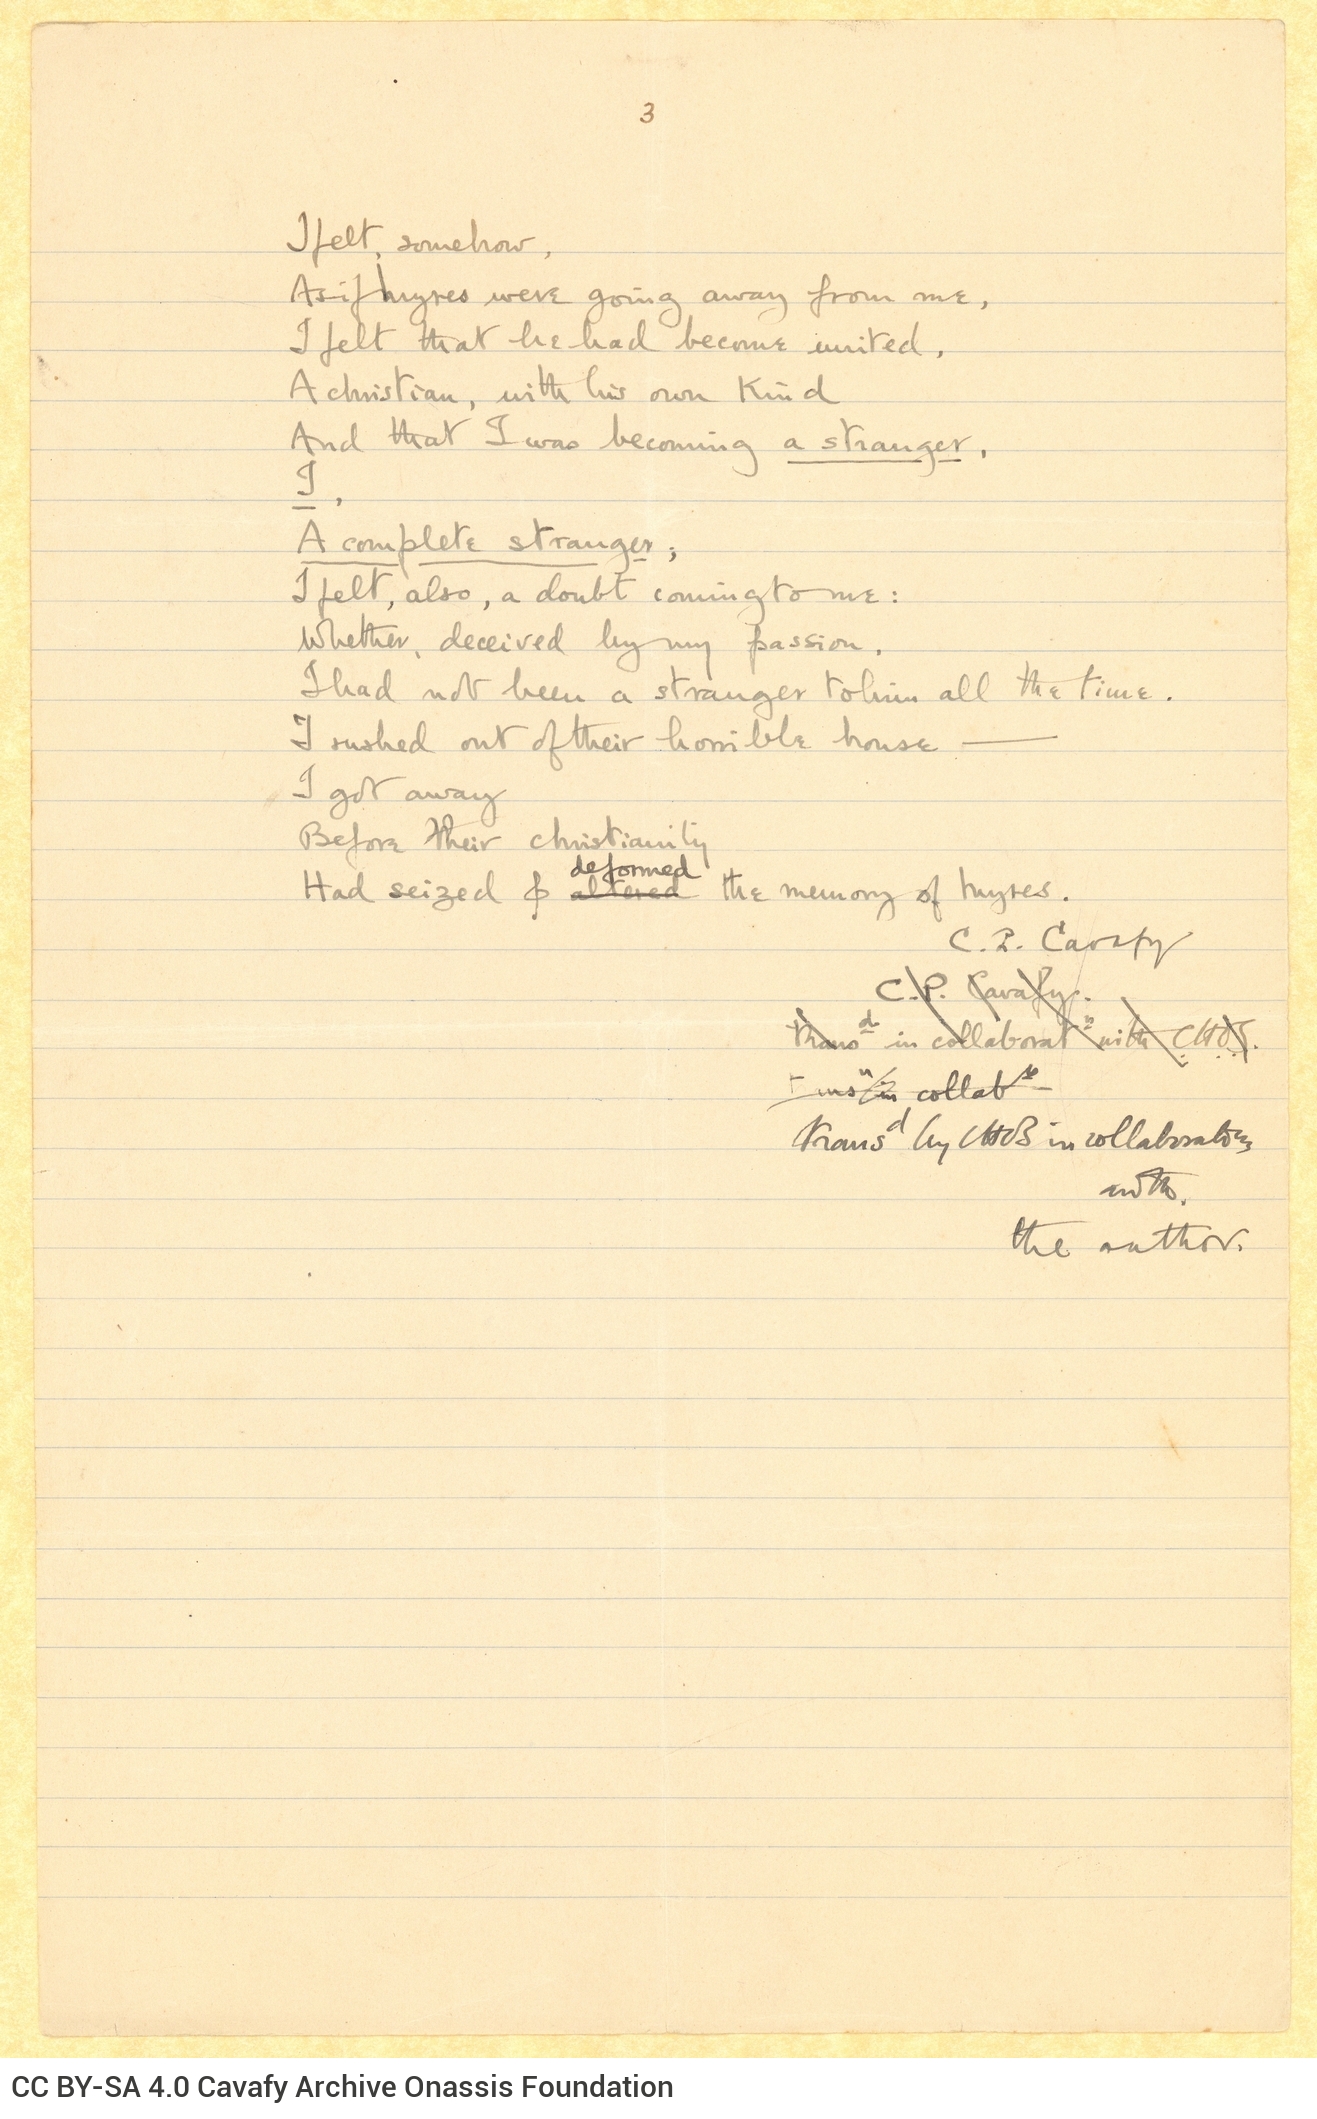 3
I felt, somehow,
As if Myres were going away from me,
I felt that he had become united,
A christian, with his own Kind
And that I was becoming a stranger,
I,
A complete stranger;
I felt, also, a doubt coming to me:
Whether, deceived by my passion,
I had not been a stranger to him all the time.
I rushed out of their horrible house —
I got away
Before their christianity
deformed
Had seized & altered the memory of Myres.
C. P. Cavafy
C. P. Cavafy.
Transd in collaboratn with
collab
Transd by in collaboration
with.
the author.
CC BY-SA 4.0 Cavafy Archive Onassis Foundation